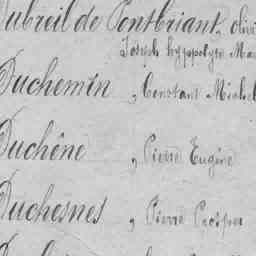 Dubreil de Pontbriant, olivi
Joseph hyppolyte Mar
Duchemin, Constant Michel
Duchêne, Pierre Eugène
Duchesnes, Pierre Prosper